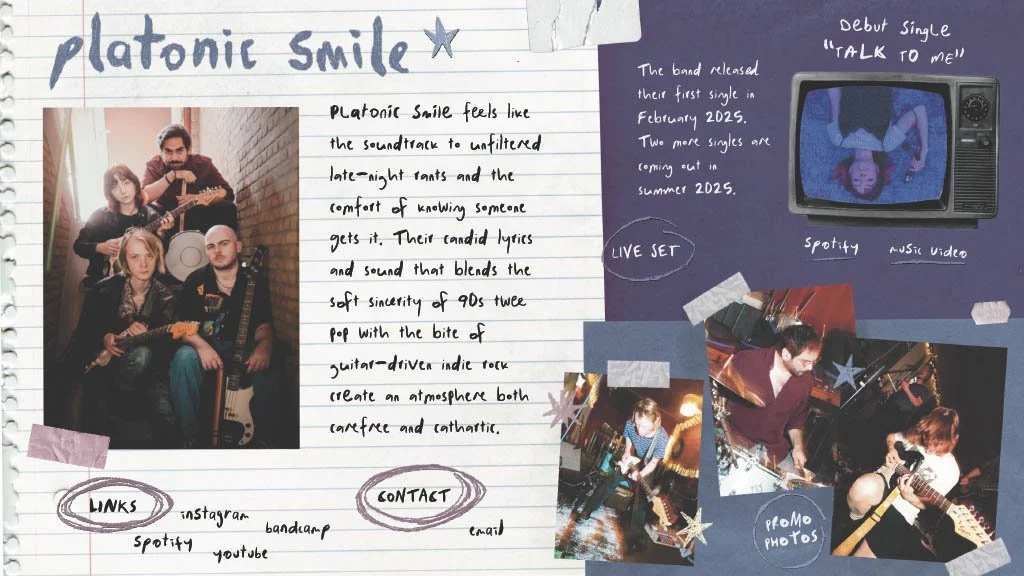 platonic smile
Platonic Smile feels like
the soundtrack to unfiltered
late-night rants and the
comfort of knowing someone
gets it. Their candid lyrics
and sound that blends the
soft sincerity of 90s twee
pop with the bite of
guitar-driven indie rock
create an atmosphere both
carefree and cathartic.
LINKS
instagram
bandcamp
spotify
youtube
CONTACT
email
The band released
their first single in
February 2025.
Two more singles are
coming out in
summer 2025.
Debut Single
"TALK TO ME"
spotify
music video
LIVE SET
PROMO
PHOTOS